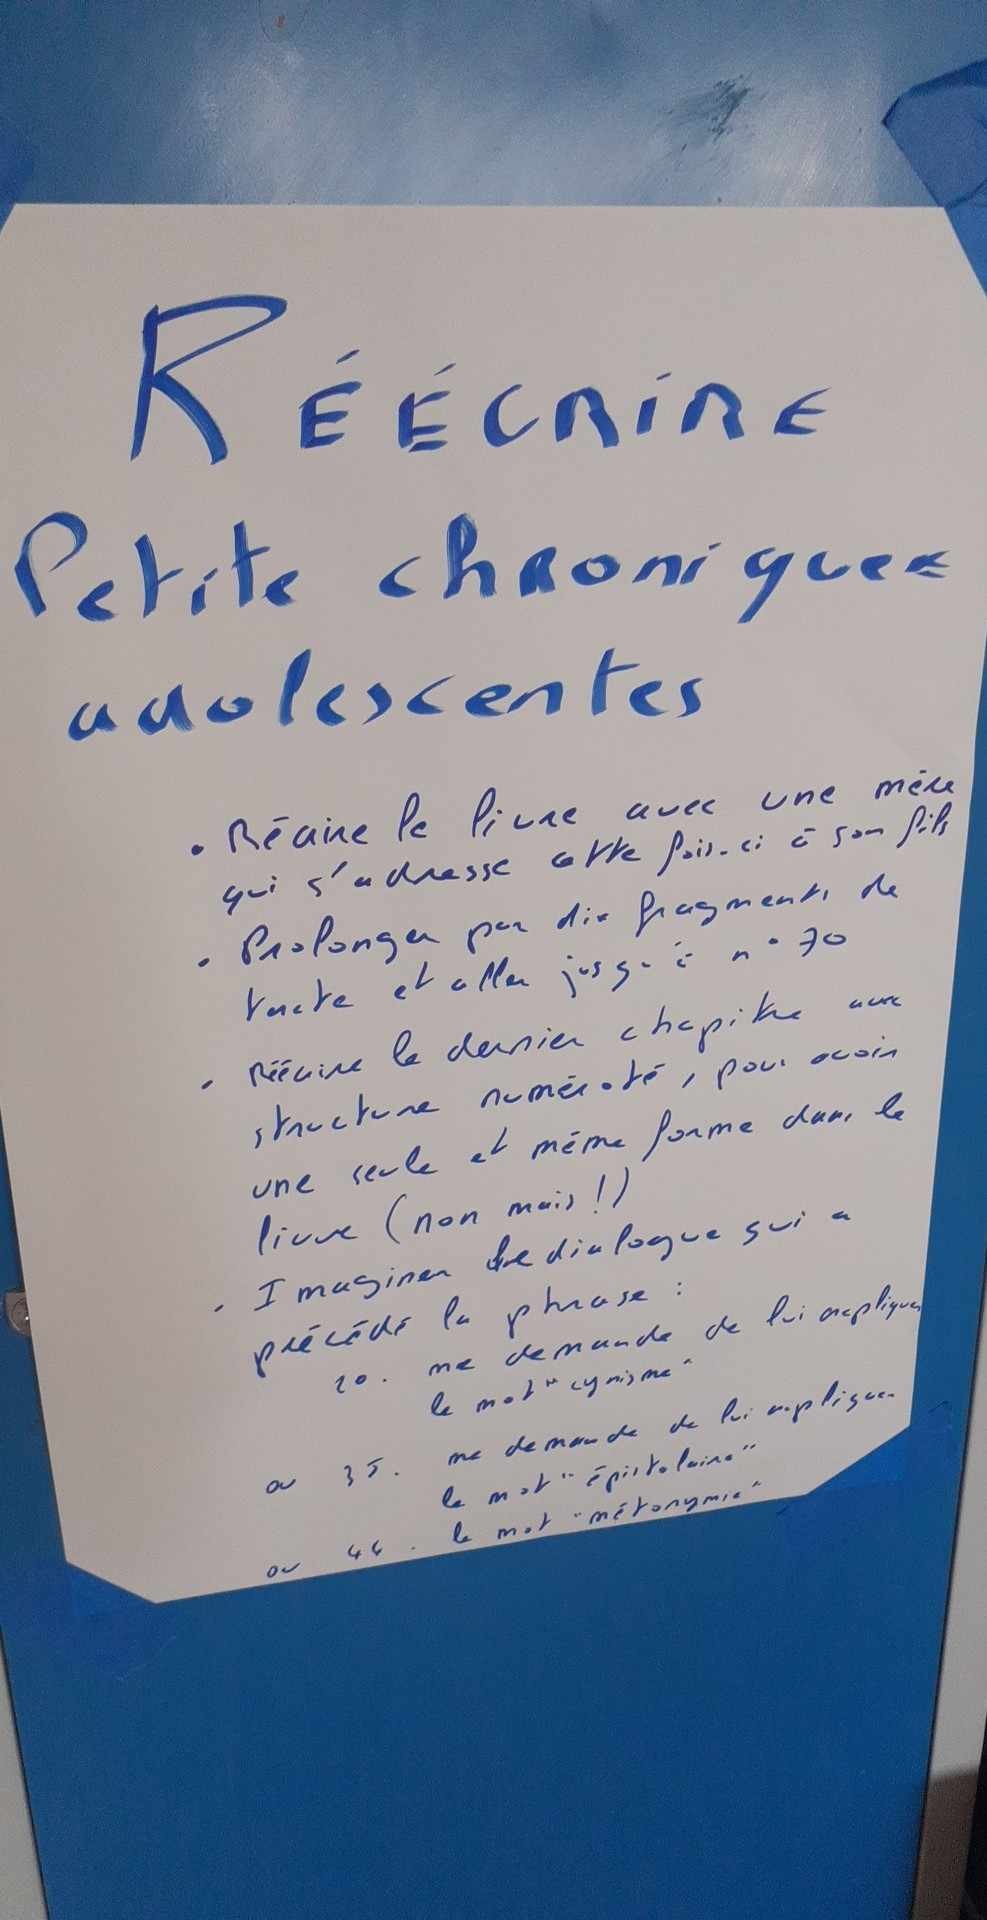 RÉÉCRIRE
Petite chroniques
adolescentes
• Réécrire le livre avec une mère
qui s'adresse cette fois-ci à son fils
• Prolonger par dix fragments de
texte et aller jusqu'à n° 70
• Réécrire le dernier chapitre avec
structure numéroté, pour avoir
une seule et même forme dans le
livre (non mais !)
• Imaginer le dialogue qui a
précédé la phrase :
20. me demande de lui expliquer
le mot "cynisme"
ou 35. me demande de lui expliquer
le mot "épistolaire"
ou 44. le mot "métonymie"